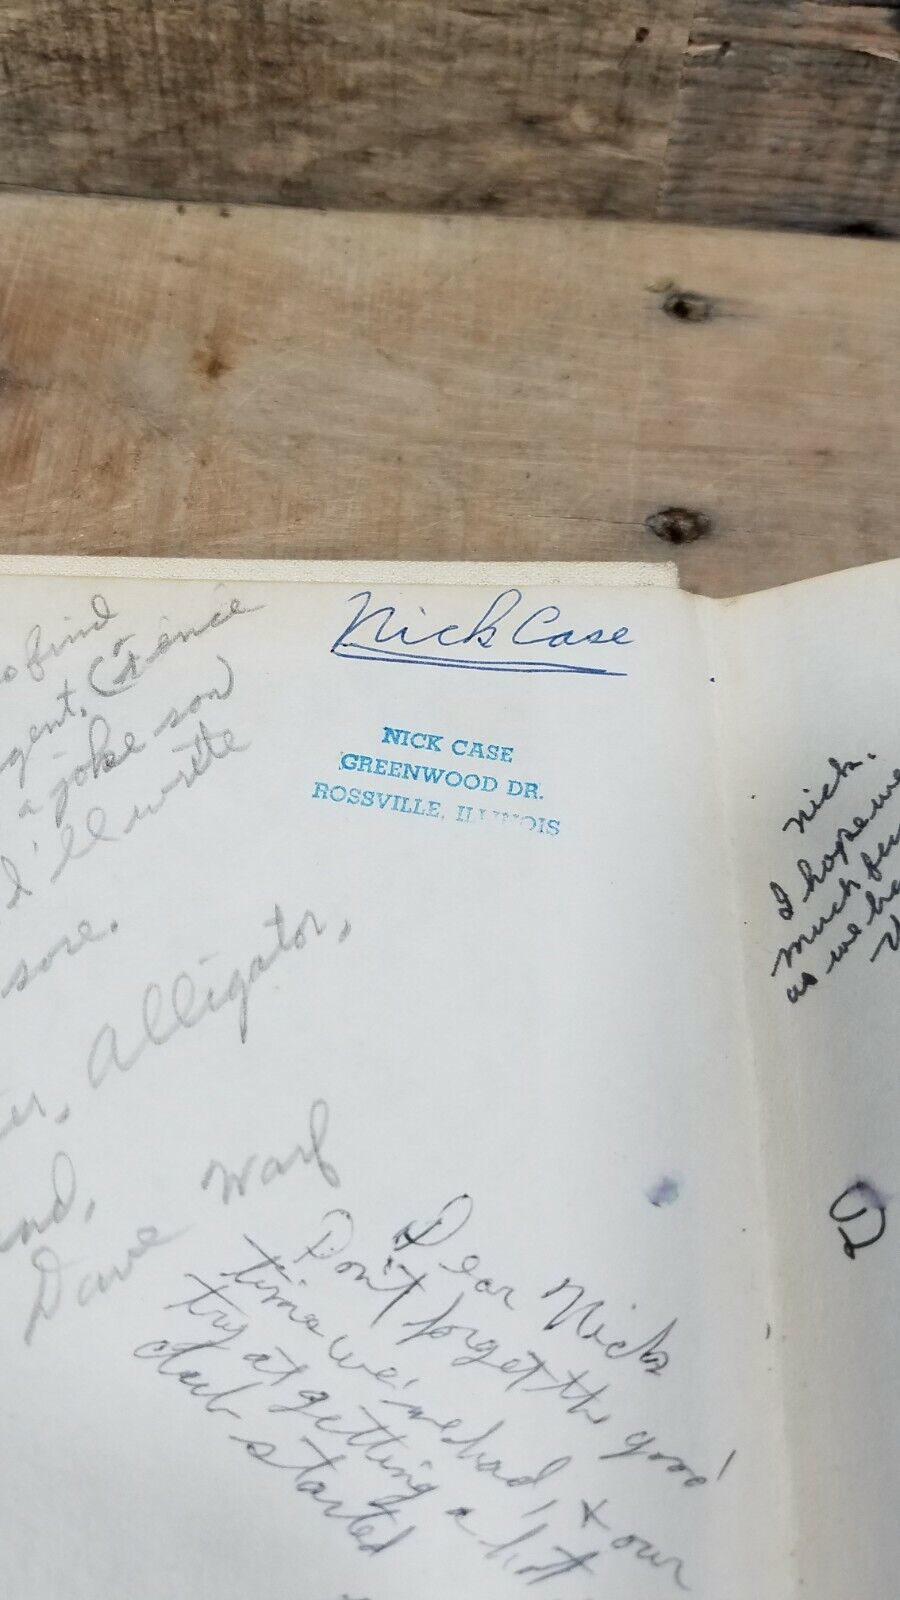 Nick Case
NICK CASE
GREENWOOD DR.
ROSSVILLE, ILLINOIS
find
a joke son
I'll write
sore.
alligator,
Dave Warf
Dear Nick
Don't forget the good
time we've had, & our
try at getting a hot
club started
Nick.
I hope we
much fu
as we ha
D